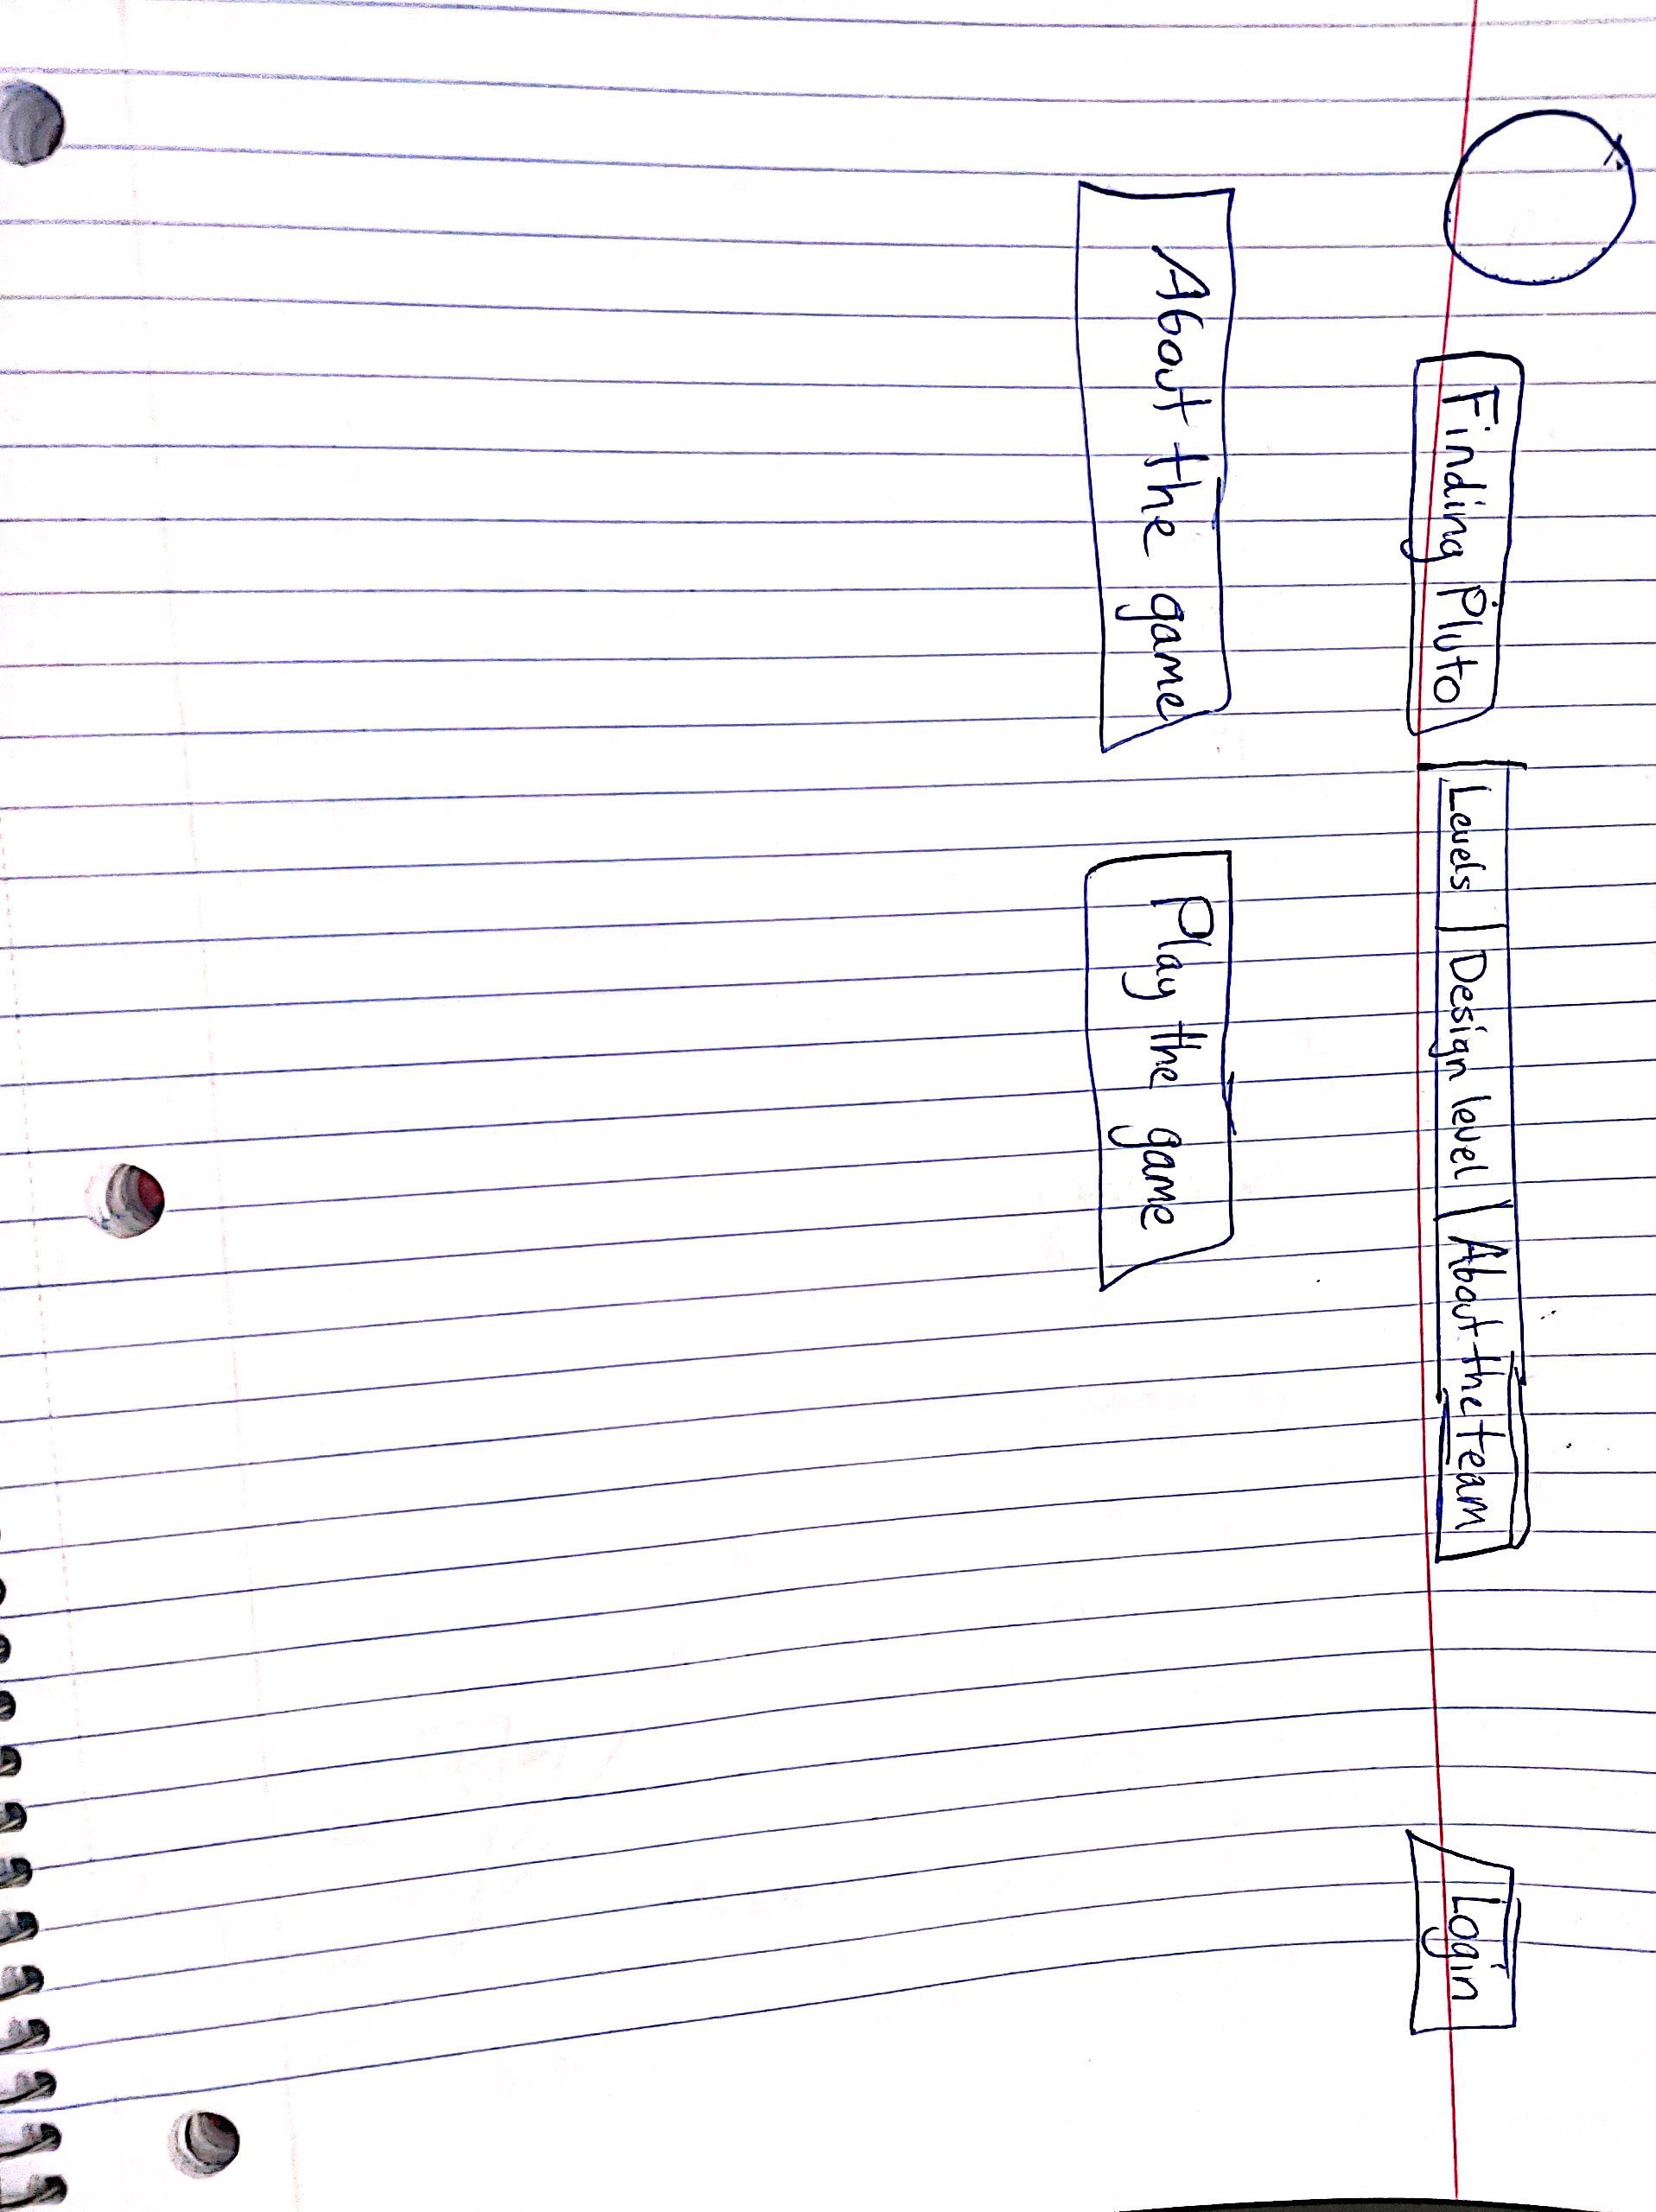 Finding Pluto
Levels | Design level | About the team
Login
About the game
Play the game